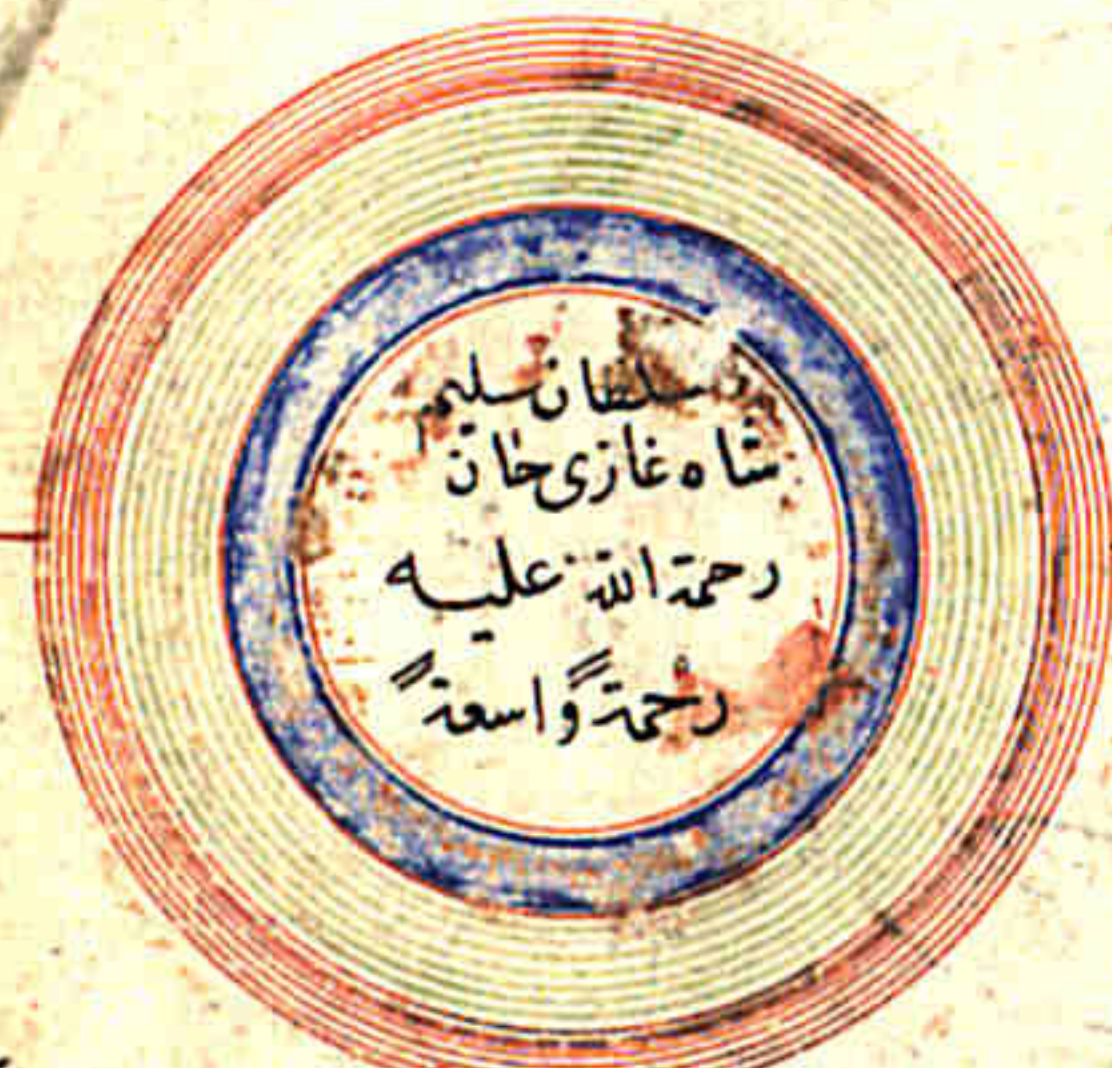 سلطان سليم
شاه غازى خان
رحمة الله عليه
رحمةً واسعةً